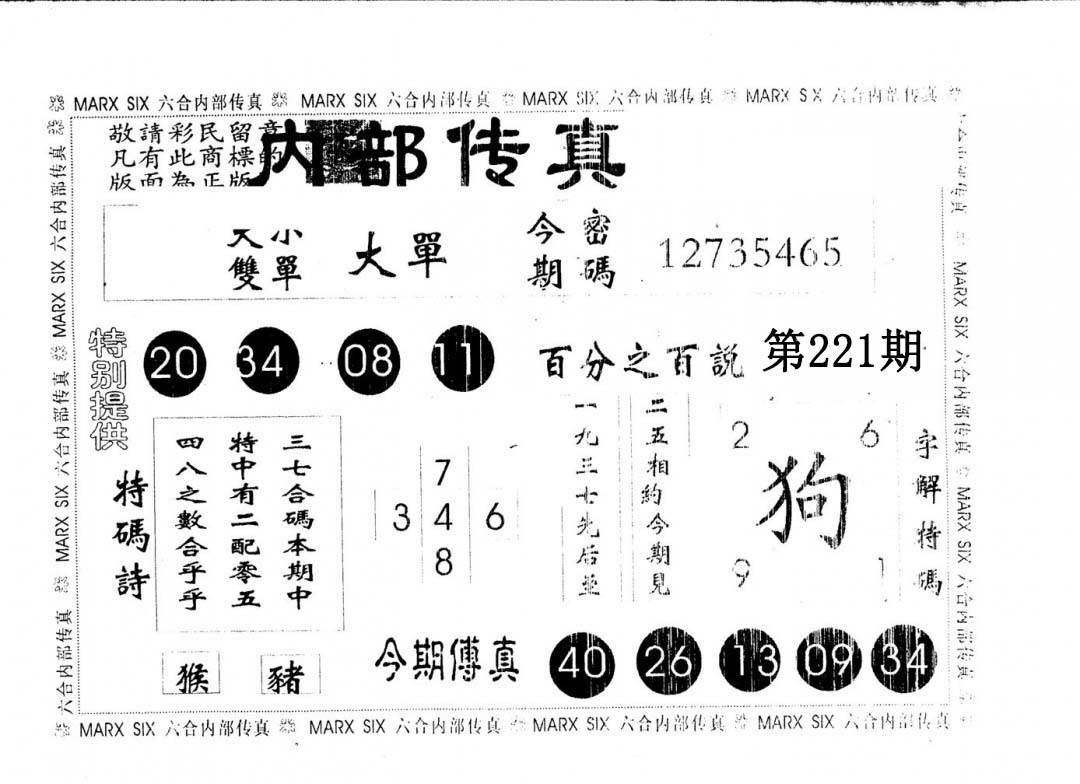 MARX SIX 六合内部传真 MARX SIX 六合内部传真 MARX SIX 六合内部传真 MARX SIX 六合内部传真
敬請彩民留意
凡有此商標的
版面為正版
内部传真
大小
雙單
大單
今期
密碼
12735465
特别提供
20 34 08 11
百分之百説
第221期
特碼詩
三七合碼本期中
特中有二配零五
四八之數合乎乎
7
3 4 6
8
二五相約今期見
一九三七先后並
2 6
狗
9 1
字解特碼
猴 豬
今期傳真
40 26 13 09 34
MARX SIX 六合内部传真 MARX SIX 六合内部传真 MARX SIX 六合内部传真 MARX SIX 六合内部传真
六合内部传真 MARX SIX 六合内部传真 MARX SIX 六合内部传真
MARX SIX 六合内部传真 MARX SIX 六合内部传真